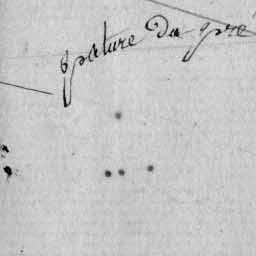 pature du pré